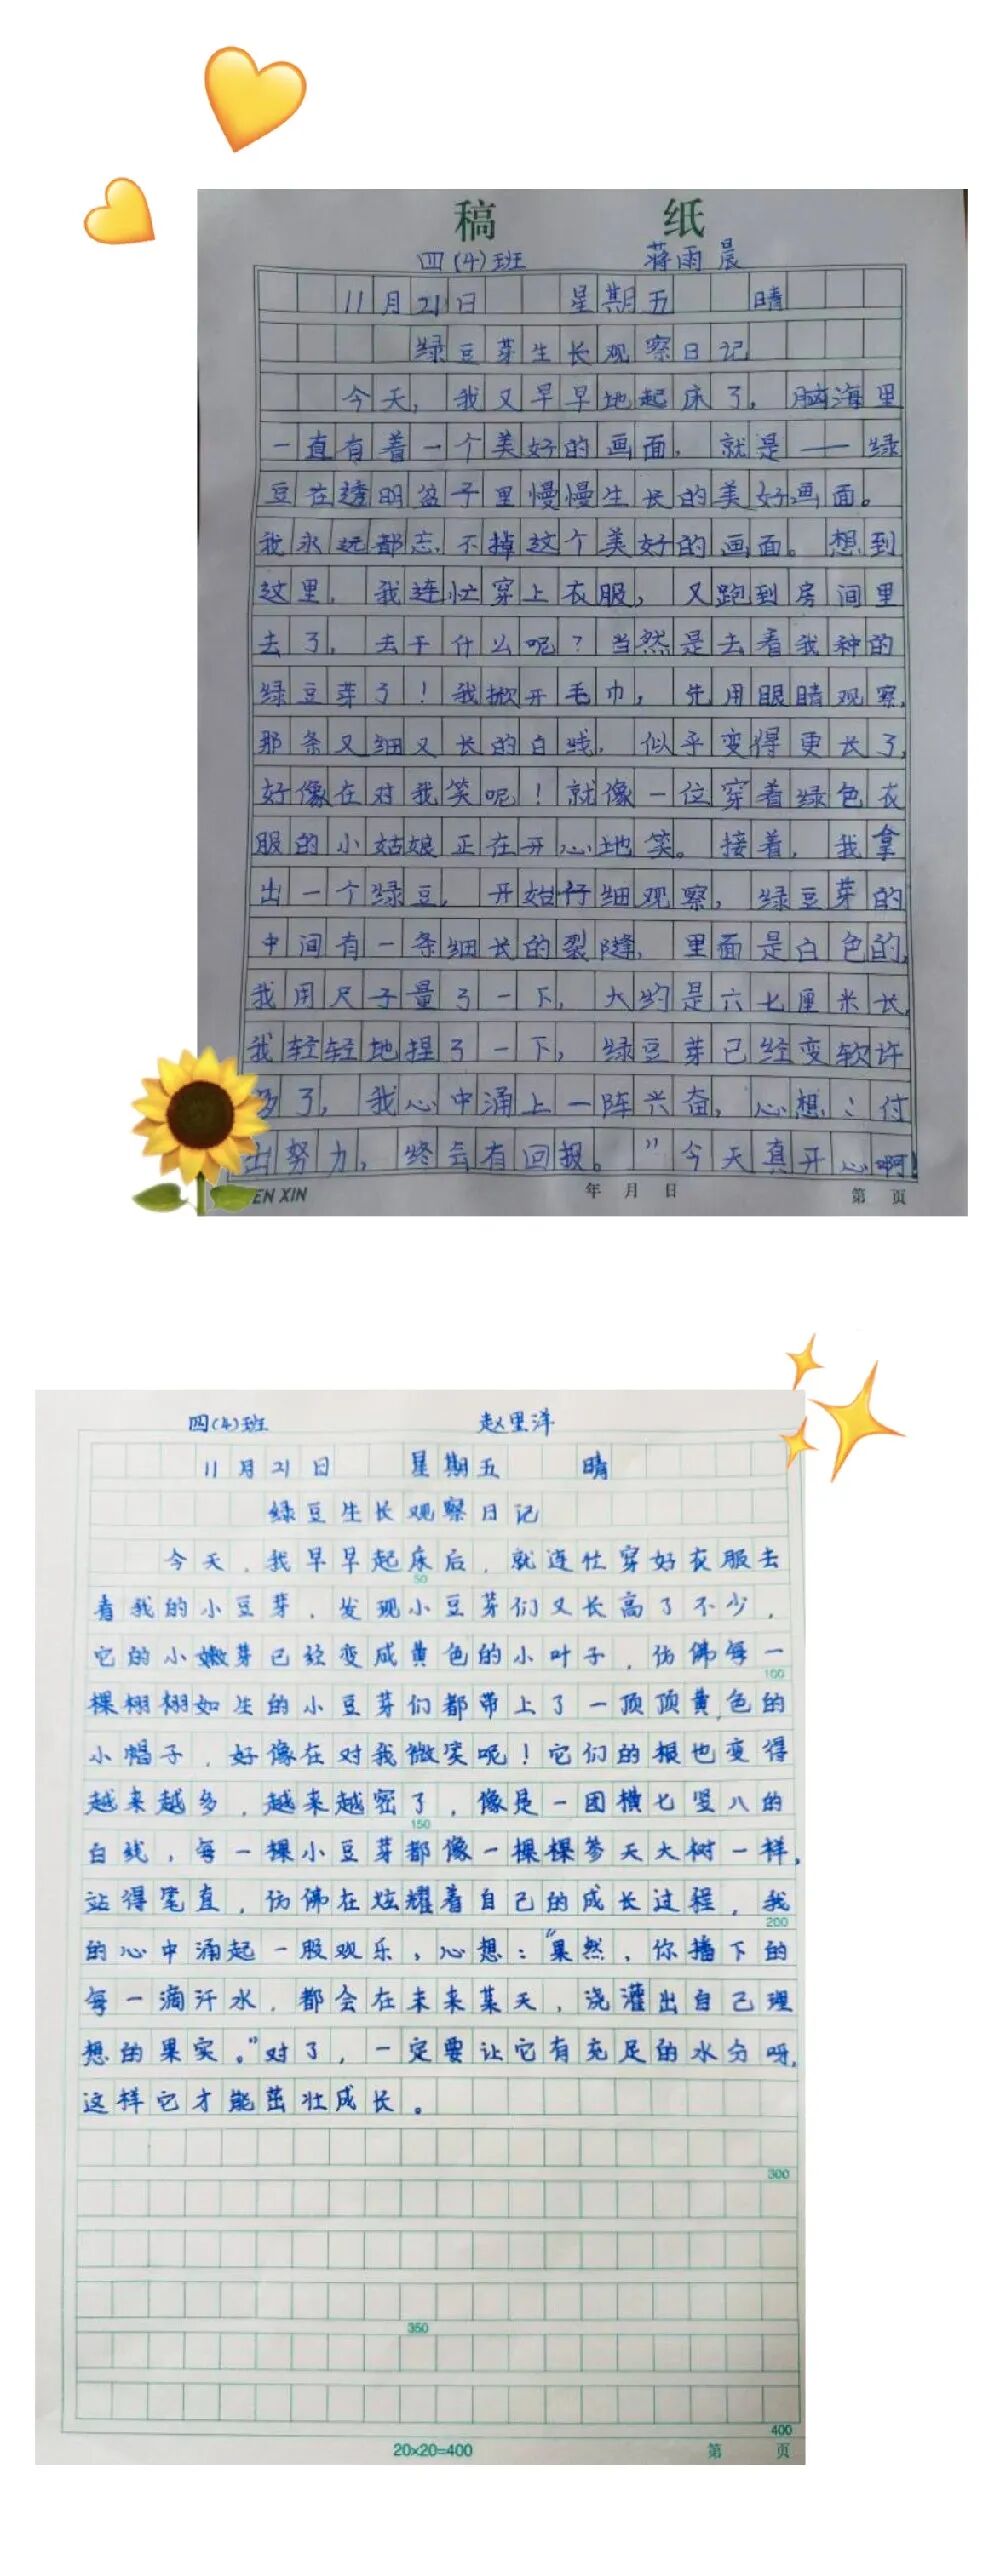 稿 纸
四(4)班 蒋雨晨
11月21日 星期五 晴
绿豆芽生长观察日记
今天，我又早早地起床了，脑海里
一直有着一个美好的画面，就是——绿
豆在透明盆子里慢慢生长的美好画面。
我永远都忘不掉这个美好的画面。想到
这里，我连忙穿上衣服，又跑到房间里
去了，去干什么呢？当然是去看我种的
绿豆芽了！我掀开毛巾，先用眼睛观察，
那条又细又长的白线，似乎变得更长了，
好像在对我笑呢！就像一位穿着绿色衣
服的小姑娘正在开心地笑。接着，我拿
出一个绿豆，开始仔细观察，绿豆芽的
中间有一条细长的裂缝，里面是白色的，
我用尺子量了一下，大约是六七厘米长，
我轻轻地捏了一下，绿豆芽已经变软许
多了，我心中涌上一阵兴奋，心想：付
出努力，终会有回报。”今天真开心啊！
EN XIN 年 月 日 第 页
四(4)班 赵里洋
11月21日 星期五 晴
绿豆生长观察日记
今天，我早早起床后，就连忙穿好衣服去
50
看我的小豆芽，发现小豆芽们又长高了不少，
它的小嫩芽已经变成黄色的小叶子，仿佛每一
100
棵栩栩如生的小豆芽们都带上了一顶顶黄色的
小帽子，好像在对我微笑呢！它们的根也变得
越来越多，越来越密了，像是一团横七竖八的
150
白线，每一棵小豆芽都像一棵棵参天大树一样，
站得笔直，仿佛在炫耀着自己的成长过程，我
200
的心中涌起一股欢乐，心想：“果然，你播下的
每一滴汗水，都会在未来某天，浇灌出自己理
想的果实。”对了，一定要让它有充足的水分呀，
这样它才能茁壮成长。
300
350
400
20×20=400 第 页